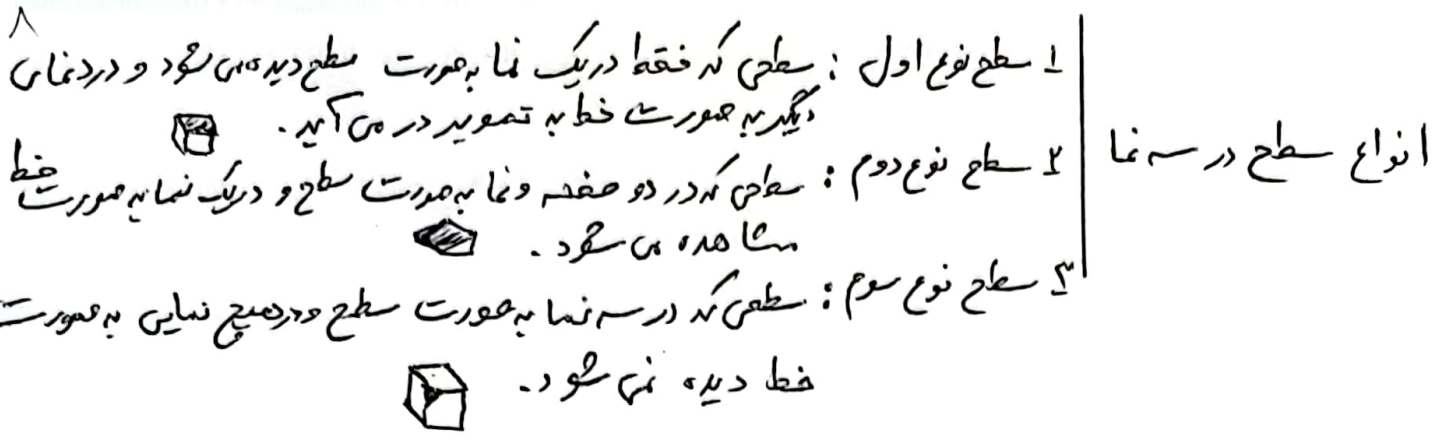 ۸
انواع سطح در سه نما
۱ سطح نوع اول : سطحی که فقط در یک نما به صورت سطح دیده می شود و در دنمای
دیگر به صورت خط به تصویر در می آید .
۲ سطح نوع دوم : سطحی که در دو صفحه و نما به صورت سطح و در یک نما به صورت خط
مشاهده می شود .
۳ سطح نوع سوم : سطحی که در سه نما به صورت سطح و در هیچ نمایی به صورت
خط دیده نمی شود .